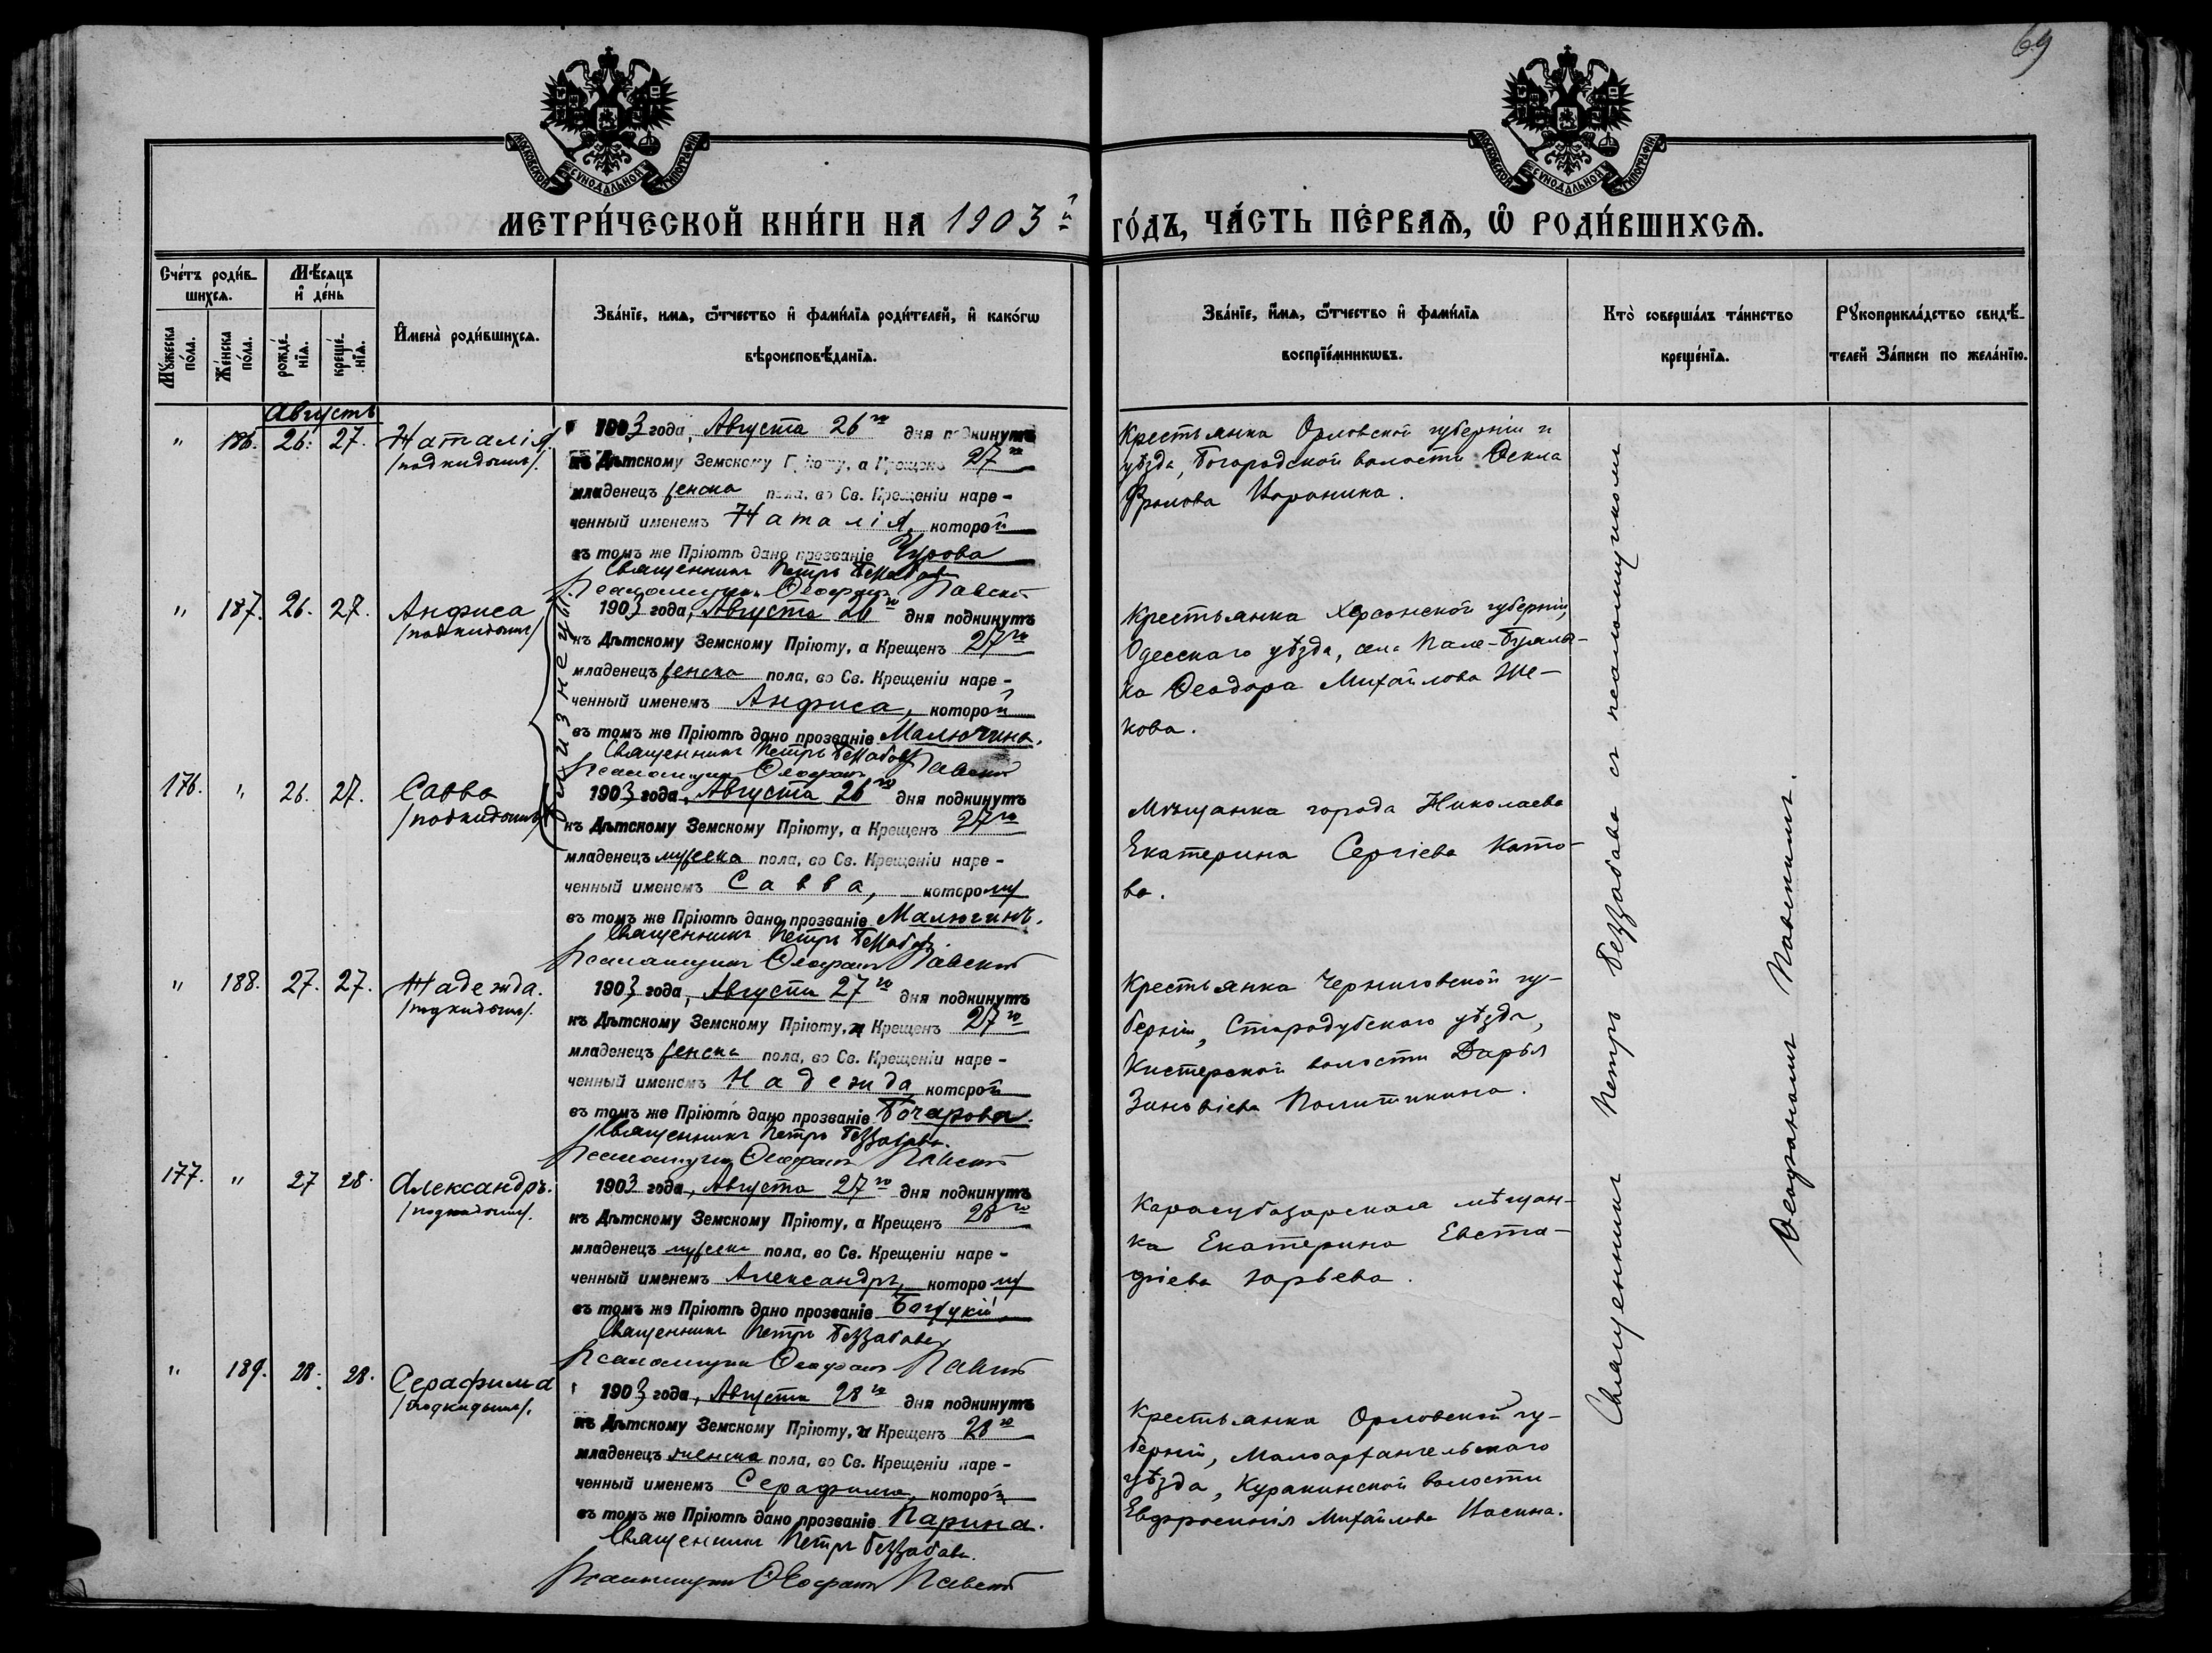 69
МОСКОВСКОЙ СѴНОДАЛЬНОЙ ТИПОГРАФІИ.
МОСКОВСКОЙ СѴНОДАЛЬНОЙ ТИПОГРАФІИ.
МЕТРИ́ЧЕСКОЙ КНИ́ГИ НА 1903й ГО́ДЪ, ЧА́СТЬ ПЕ́РВАѦ, Ѿ РОДИ́ВШИХСѦ.
Сче́тъ роди́в-
шихсѧ.
Мѣ́сѧцъ
и҆ де́нь
Мꙋ́жеска
по́ла.
Же́нска
по́ла.
рожде́-
нїѧ.
креще́-
нїѧ.
И҆мена̀ роди́вшихсѧ.
Зва́нїе, имѧ, ѻ҆́тчество и҆ фами́лїѧ роди́телей, и҆ како́гѡ
вѣроисповѣ́данїѧ.
Зва́нїе, и҆́мѧ, ѻ҆́тчество и҆ фами́лїѧ
воспрїе́мникѡвъ.
Кто̀ соверша́лъ та́инство
креще́нїѧ.
Рꙋкоприкла́дство свидѣ́-
телей За́писи по жела́нїю.
Августъ
" 186. 26. 27. Наталія
/подкидышъ/.
1903 года, Августа 26го дня подкинутъ
къ Дѣтскому Земскому Пріюту, а Крещенъ 27го
младенецъ женска пола, во Св. Крещеніи наре-
ченный именемъ Наталія, которой
въ томъ же Пріютѣ дано прозваніе Чурова
Священникъ Петръ Беззабава
Псаломщикъ Ѳеофанъ Павскій
Крестьянка Орловской губерніи и
уѣзда, Богородской волости Ѳекла
Фролова
" 187. 26. 27. Анфиса
/подкидышъ/
близнецы
1903 года, Августа 26го дня подкинутъ
къ Дѣтскому Земскому Пріюту, а Крещенъ 27го
младенецъ женска пола, во Св. Крещеніи наре-
ченный именемъ Анфиса, которой
въ томъ же Пріютѣ дано прозваніе Малюгина.
Священникъ Петръ Беззабава
Псаломщикъ Ѳеофанъ Павскій
Крестьянка Херсонской губерніи,
Одесскаго уѣзда, села
Ѳеодора Михайлова Же-
кова.
176. " 26. 27. Савва
/подкидышъ/
1903 года, Августа 26го дня подкинутъ
къ Дѣтскому Земскому Пріюту, а Крещенъ 27го
младенецъ мужеска пола, во Св. Крещеніи наре-
ченный именемъ Савва, которому
въ томъ же Пріютѣ дано прозваніе Малюгинъ.
Священникъ Петръ Беззабава
Псаломщикъ Ѳеофанъ Павскій
Мѣщанка города Николаева
Екатерина Сергіева Като-
ва.
" 188. 27. 27. Надежда.
/подкидышъ/.
1903 года, Августа 27го дня подкинутъ
къ Дѣтскому Земскому Пріюту, и Крещенъ 27го
младенецъ женска пола, во Св. Крещеніи наре-
ченный именемъ Надежда, которой
въ томъ же Пріютѣ дано прозваніе Бочарова.
Священникъ Петръ Беззабава.
Псаломщикъ Ѳеофанъ Павскій
Крестьянка Черниговской гу-
берніи, Стародубскаго уѣзда,
Кистерской волости Дарья
Зиновіева Политикина.
177. " 27 28. Александръ.
/подкидышъ/.
1903 года, Августа 27го дня подкинутъ
къ Дѣтскому Земскому Пріюту, а Крещенъ 28го
младенецъ мужеска пола, во Св. Крещеніи наре-
ченный именемъ Александръ, которому
въ томъ же Пріютѣ дано прозваніе
Священникъ Петръ Беззабава
Псаломщикъ Ѳеофанъ Павскій
Карасубазарская мѣщан-
ка Екатерина Евста-
фіева Юрьева.
" 189. 28. 28. Серафима
/подкидышъ/.
1903 года, Августа 28го дня подкинутъ
къ Дѣтскому Земскому Пріюту, и Крещенъ 28го
младенецъ женска пола, во Св. Крещеніи наре-
ченный именемъ Серафима, которой
въ томъ же Пріютѣ дано прозваніе Парина.
Священникъ Петръ Беззабава.
Псаломщикъ Ѳеофанъ Павскій
Крестьянка Орловской гу-
берніи, Малоархангельскаго
уѣзда, Куракинской волости
Евфросинія Михайлова
Священникъ Петръ Беззабава съ псаломщикомъ
Ѳеофаномъ Павскимъ.